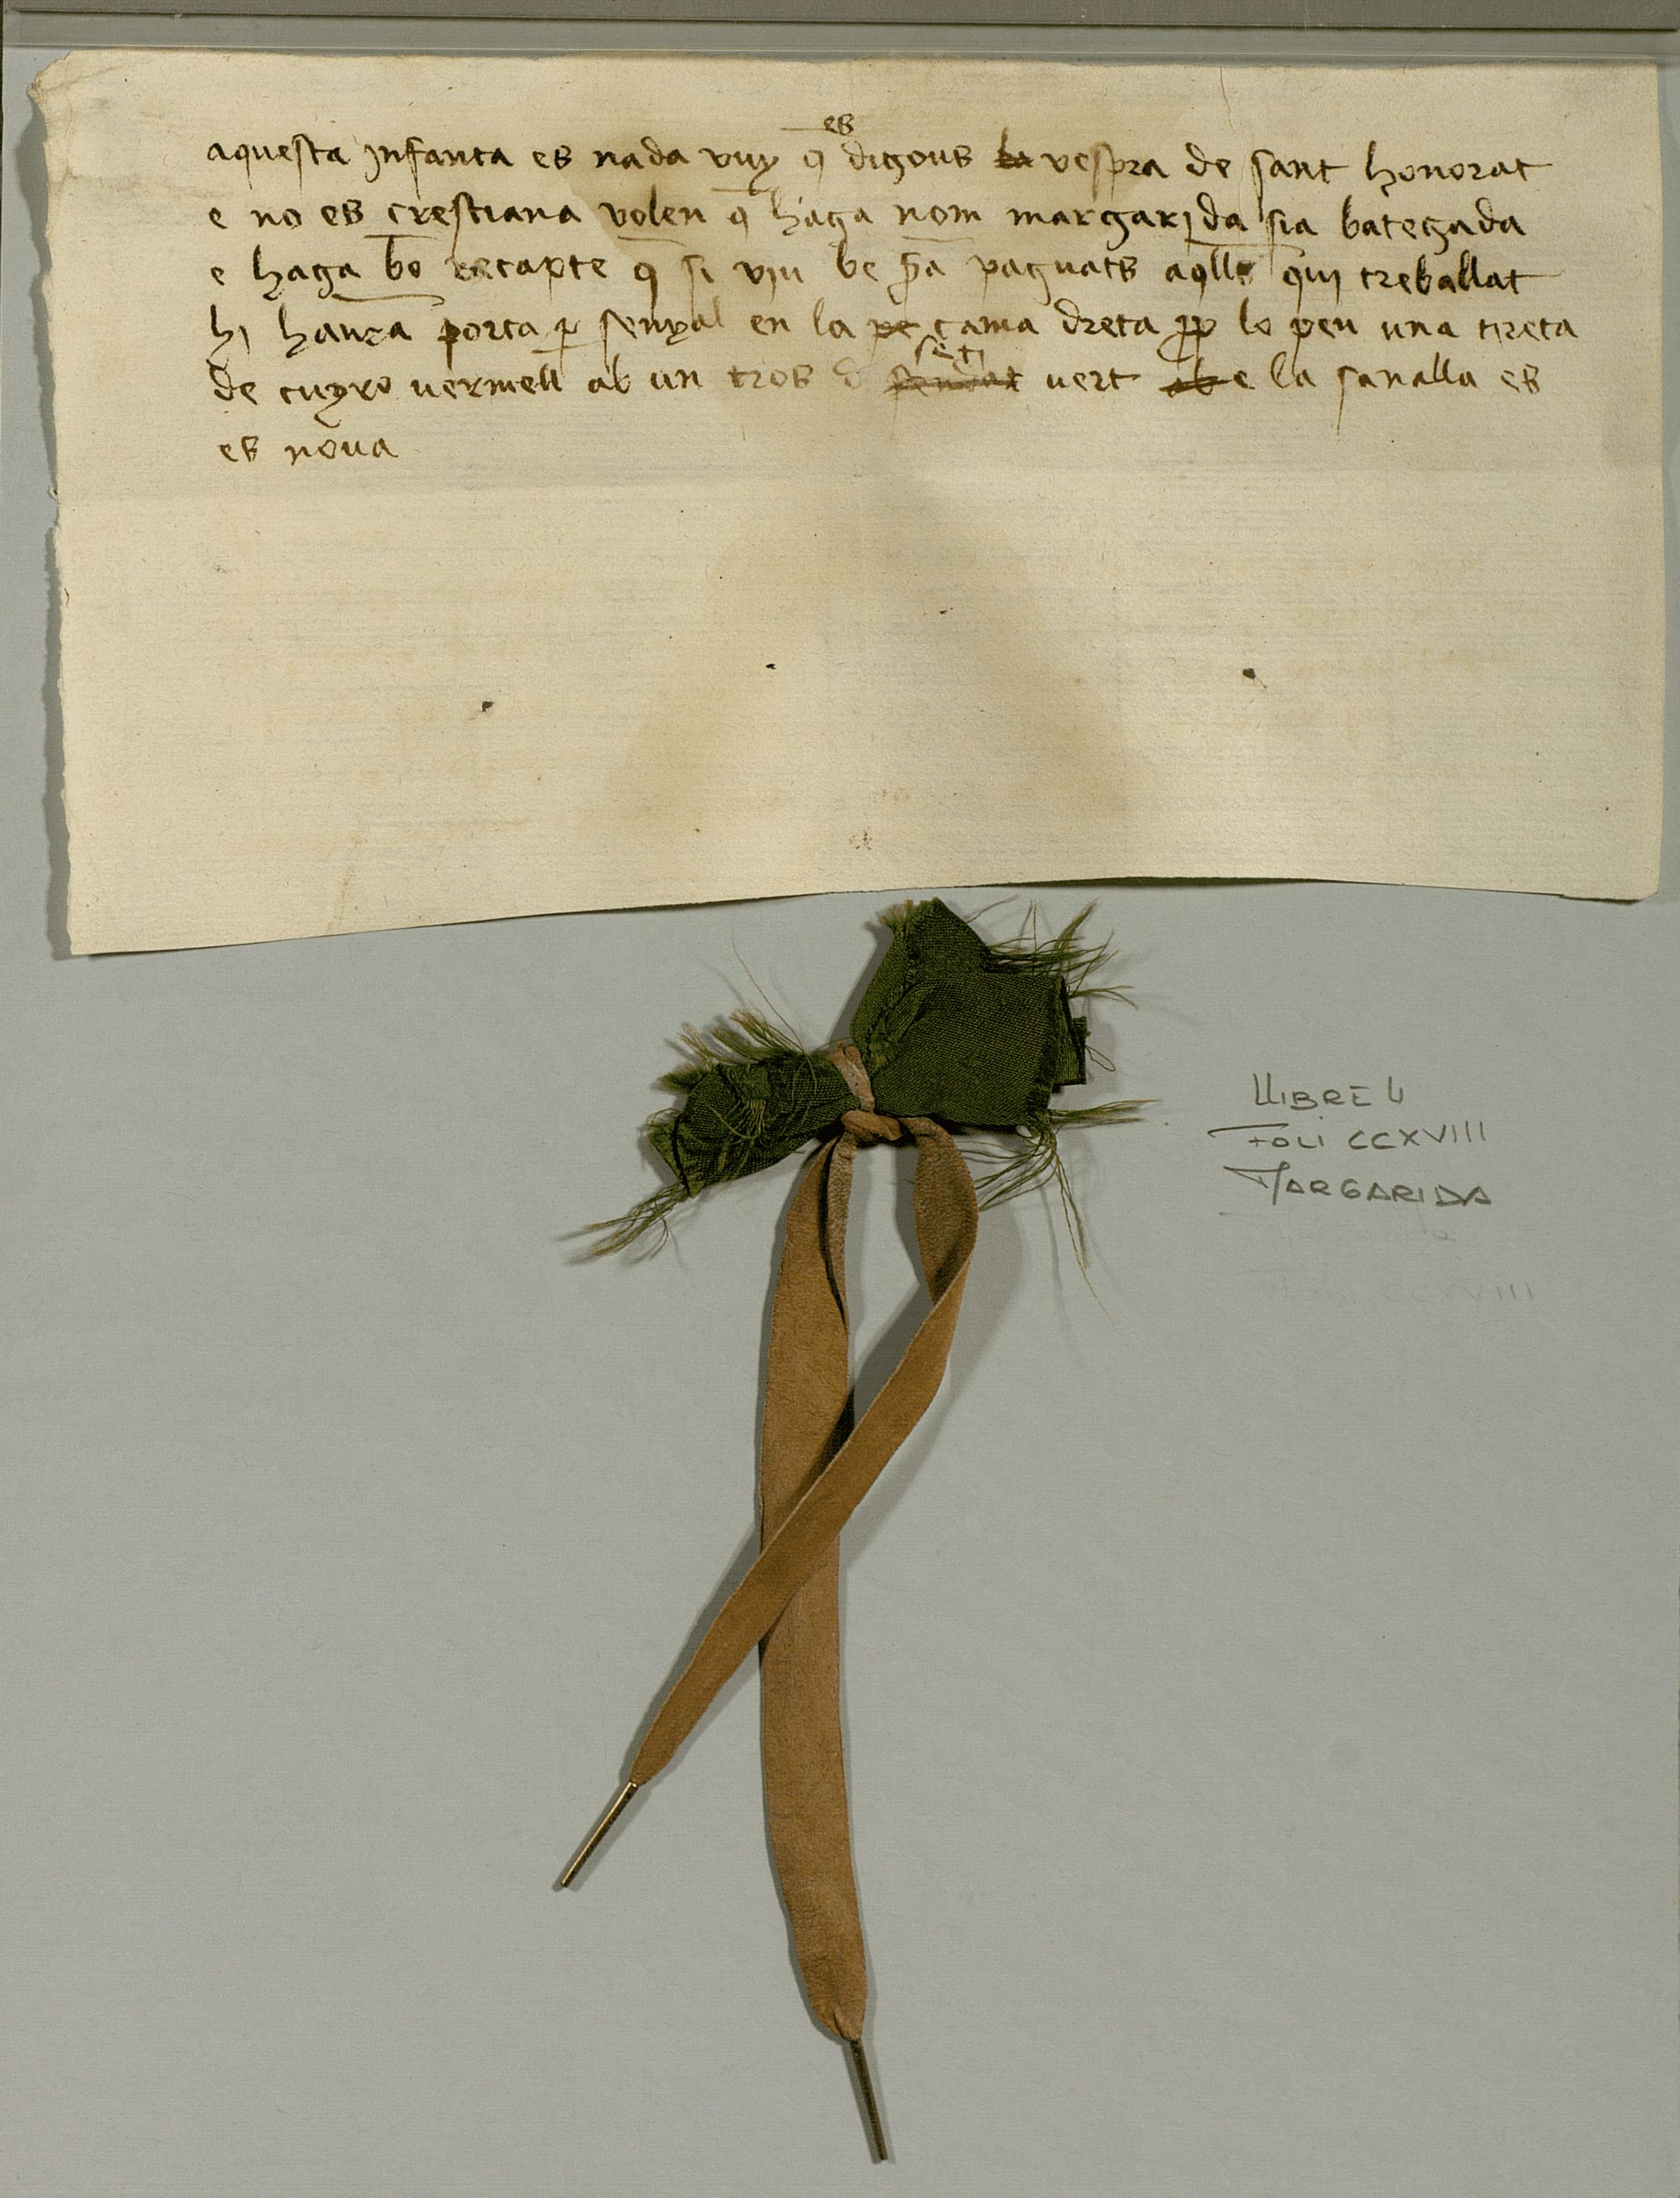 aquesta jnfanta es nada vuy q̄ es digous la vespra de sant honorat
e no es crestiana volen q̄ haga nom margarjda sia bategada
e haga bo recapte q̄ si viu be s̄ra paguats aq̄lls quj treballat
hj haura porta p̱ senyal en la pe cama dreta prop lo peu una tireta
de cuyro vermell ab un tros d sētj sendat vert ab e la sanalla es
es noua
LLIBRE 4
FOLI CCXVIII
MARGARIDA
CCXVIII